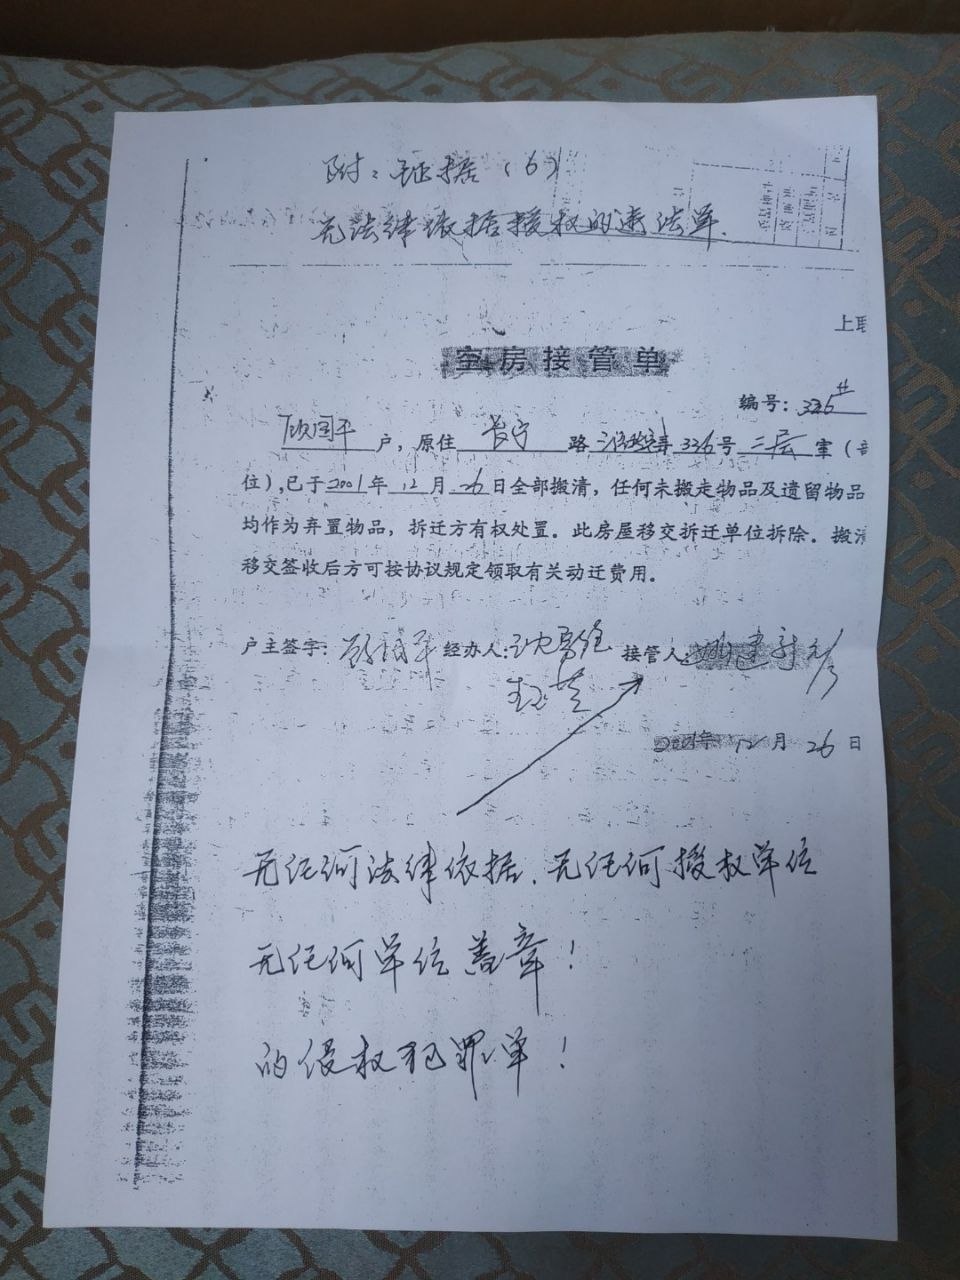 附：证据（6）
无法律依据授权的违法单.
上联
空房接管单
编号：336#
顾国平户，原住长宁路 弄336号三层室（部
位），已于2001年12月26日全部搬清，任何未搬走物品及遗留物品
均作为弃置物品，拆迁方有权处置。此房屋移交拆迁单位拆除。搬清
移交签收后方可按协议规定领取有关动迁费用。
户主签字：顾国平 经办人： 接管人：
2001年12月26日
无任何法律依据、无任何授权单位
无任何单位盖章！
的侵权犯罪单！